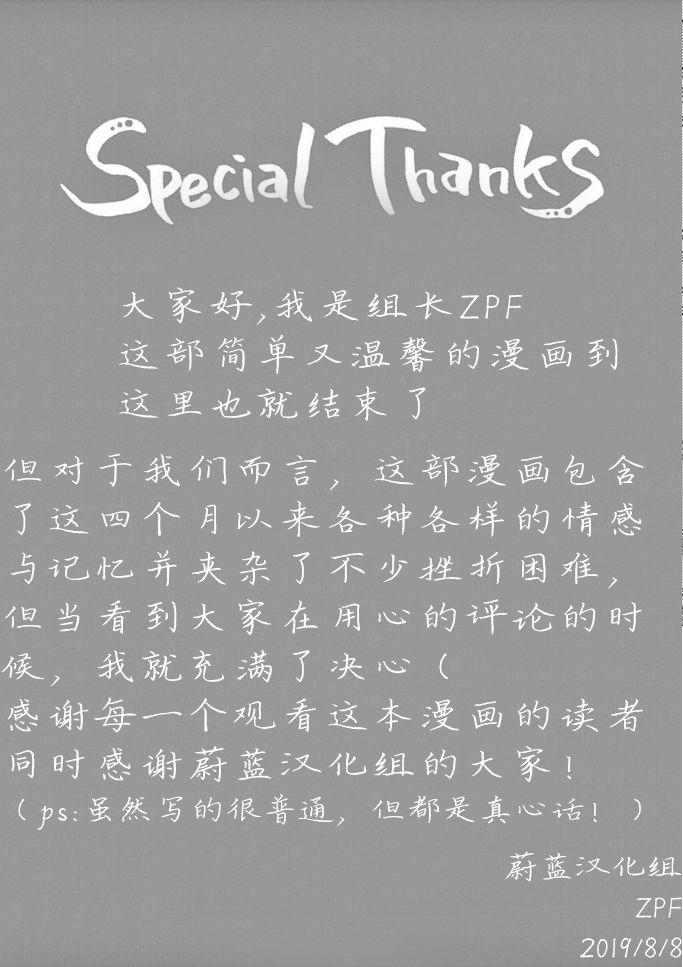 Special Thanks
大家好,我是组长ZPF
这部简单又温馨的漫画到
这里也就结束了
但对于我们而言，这部漫画包含
了这四个月以来各种各样的情感
与记忆并夹杂了不少挫折困难，
但当看到大家在用心的评论的时
候，我就充满了决心（
感谢每一个观看这本漫画的读者
同时感谢蔚蓝汉化组的大家！
（ps:虽然写的很普通，但都是真心话！）
蔚蓝汉化组
ZPF
2019/8/8